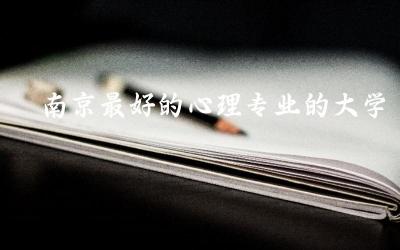 南京最好的心理专业的大学